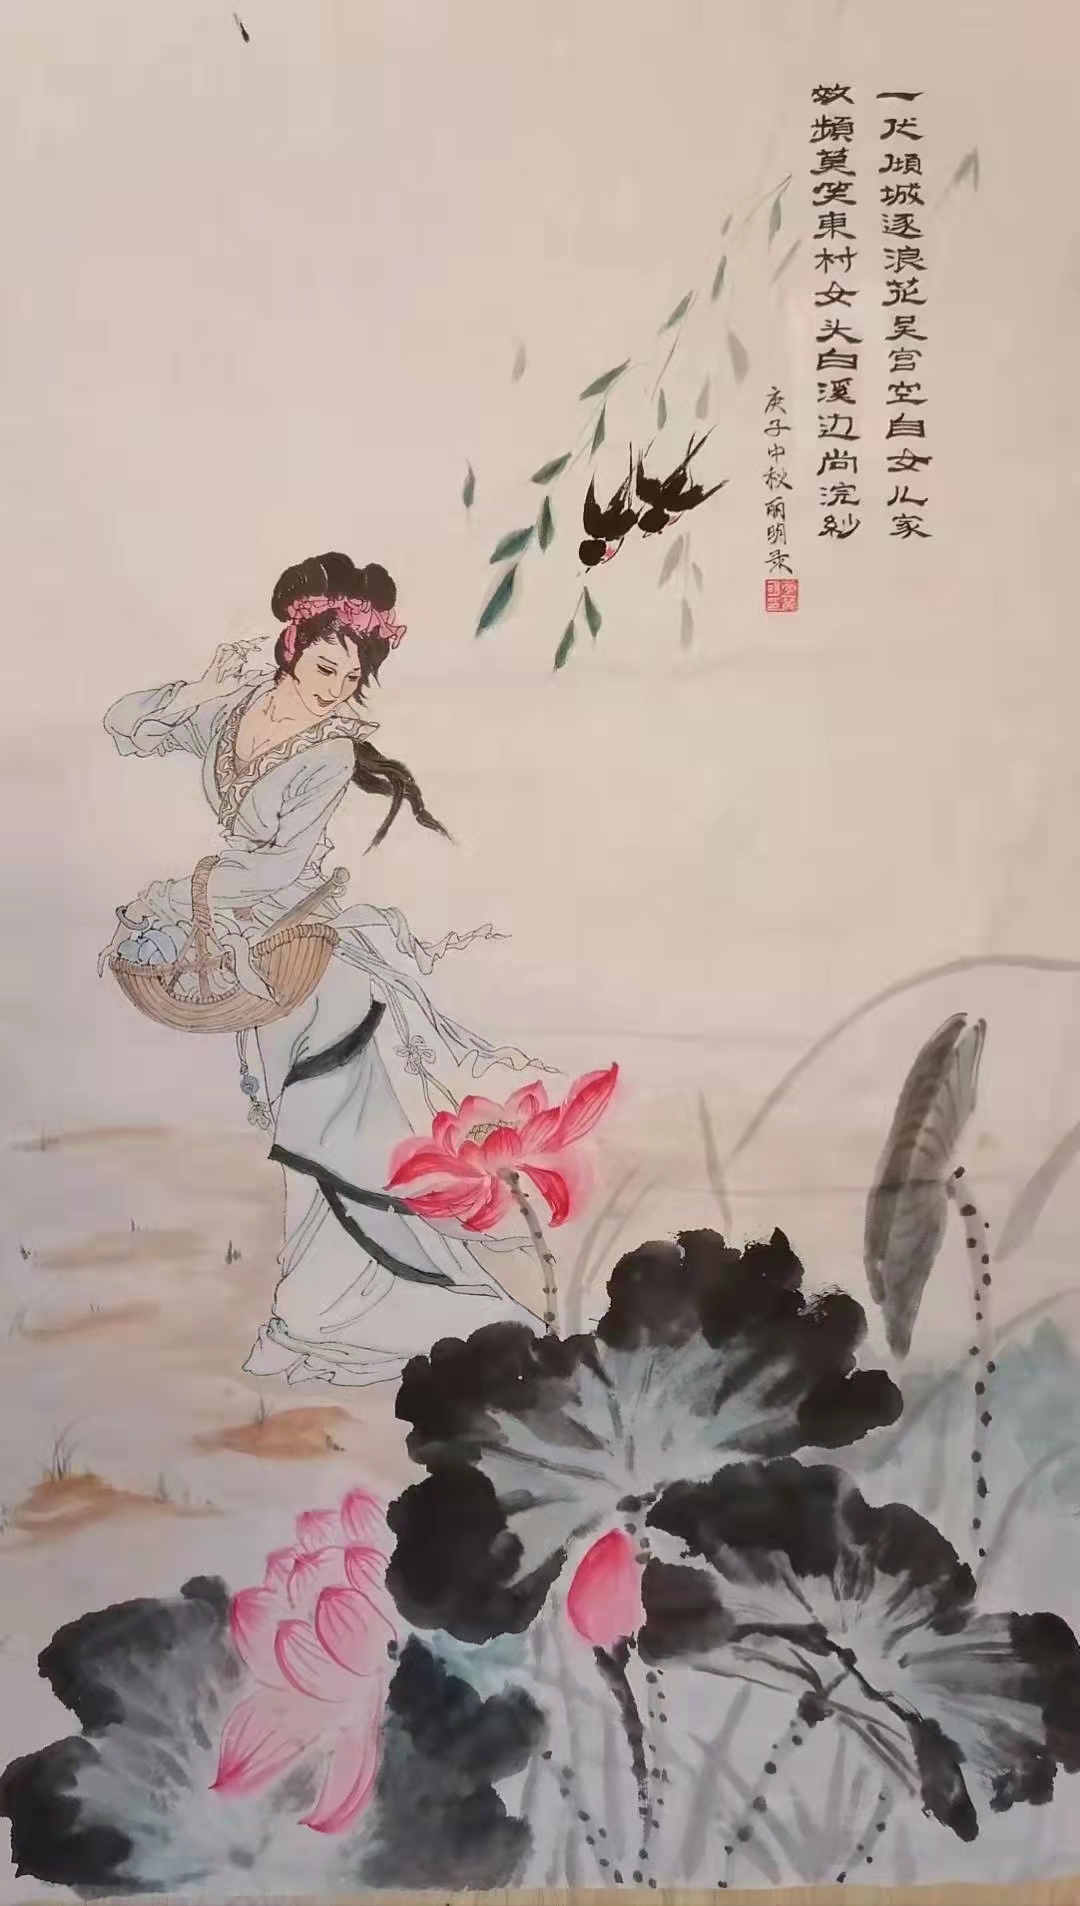 一代倾城逐浪花吴宫空自女儿家
效頻莫笑東村女头白溪边尚浣紗
庚子中秋丽明录